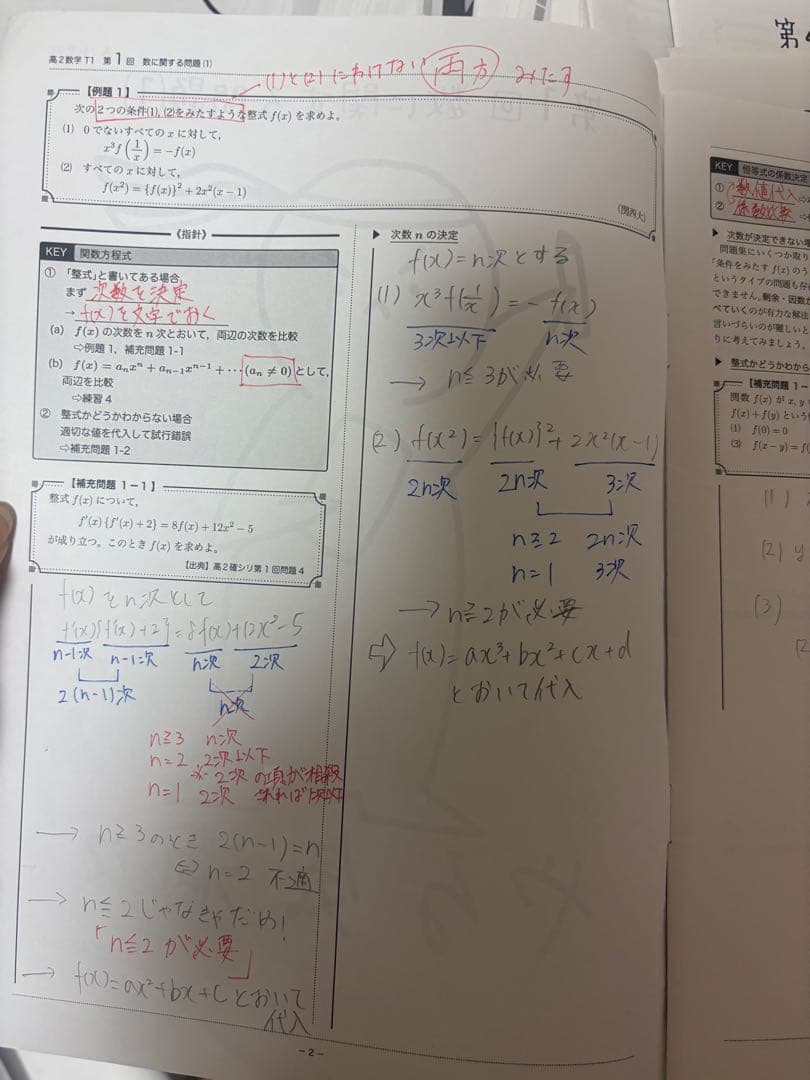 高2数学 T1 第1回 数に関する問題(1)
(1)と(2)にわけない 両方 みたす
【例題1】
次の2つの条件(1), (2)をみたすような整式 f(x) を求めよ。
(1) 0でないすべての x に対して,
x³f(1/x) = −f(x)
(2) すべての x に対して,
f(x²) = {f(x)}² + 2x²(x−1)
(関西大)
《指針》
KEY 関数方程式
① 「整式」と書いてある場合,
まず 次数を決定
→ f(x)を文字でおく
(a) f(x) の次数を n 次とおいて, 両辺の次数を比較
⇨例題1, 補充問題 1-1
(b) f(x) = aₙxⁿ + aₙ₋₁xⁿ⁻¹ + ⋯ (aₙ ≠ 0) として,
両辺を比較
⇨練習4
② 整式かどうかわからない場合
適切な値を代入して試行錯誤
⇨補充問題 1-2
【補充問題 1−1】
整式 f(x) について,
f′(x){f′(x)+2} = 8f(x)+12x²−5
が成り立つ。このとき f(x) を求めよ。
【出典】高2確シリ第1回問題4
f(x)をn次として
f′(x){f′(x)+2} = 8f(x)+12x²−5
n−1次 n−1次 n次 2次
2(n−1)次 n次
n≧3 n次
n=2 2次以下
※ 2次の項が相殺
n=1 2次 されれば1次以下
→ n≧3のとき 2(n−1)=n
⇔ n=2 不適
→ n≦2じゃなきゃだめ!
「n≦2が必要」
→ f(x)=ax²+bx+cとおいて
代入
▶ 次数 n の決定
f(x)=n次とする
(1) x³f(1/x) = −f(x)
3次以下 n次
→ n≦3が必要
(2) f(x²) = {f(x)}² + 2x²(x−1)
2n次 2n次 3次
n≧2 2n次
n=1 3次
→ n≧2が必要
⇨ f(x)=ax³+bx²+cx+d
とおいて代入
−2−
第
KEY 恒等式の係数決定
① 数値代入
② 係数比較
▶ 次数が決定できない場
問題集にいくつか取り
「条件をみたす f(x) のう
というタイプの問題も存
できません。剰余・因数
べていくのが有力な解法
言いづらいのが難しいと
りに考えてみましょう。
▶ 整式かどうかわから
【補充問題
関数 f(x) が x, y
f(x)+f(y) という
(1) f(0)=0
(3) f(x−y)=f(
(1)
(2) y
(3)